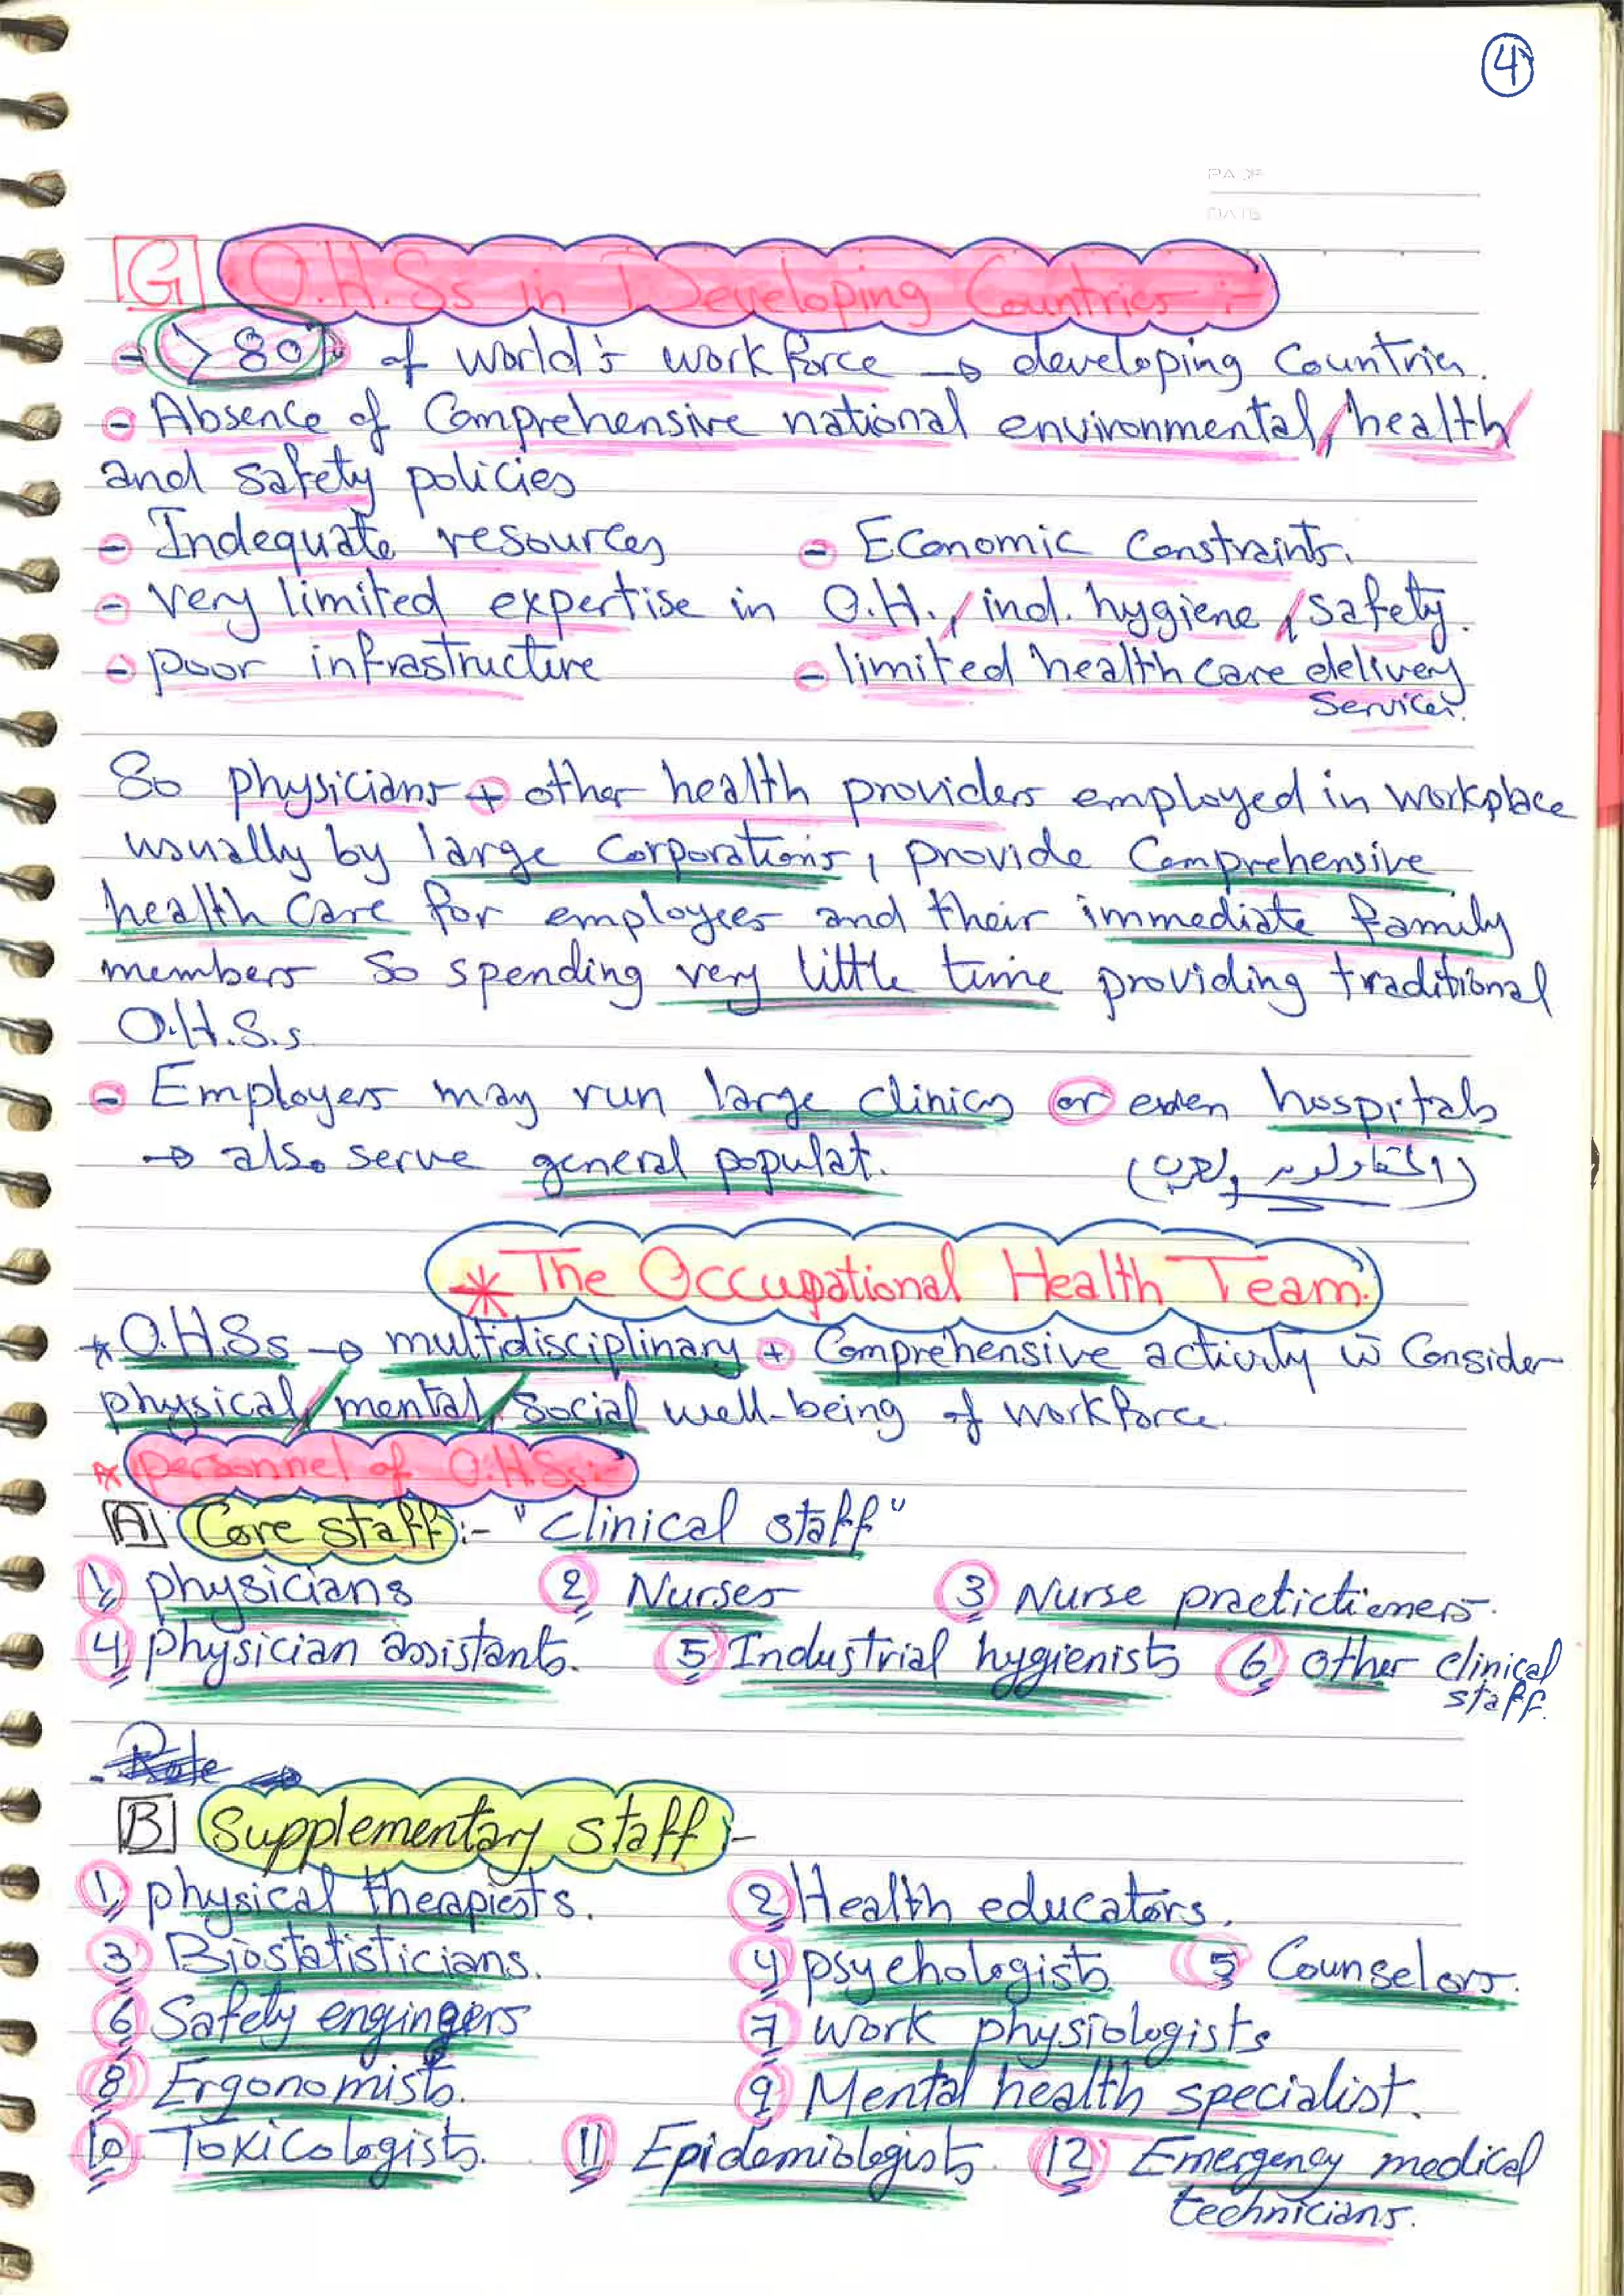 4
PAGE
DATE
G O.H.Ss in Developing Countries :-
- > 80% of world's workforce → developing Countries.
- Absence of Comprehensive national environmental / health /
and safety policies
- Indequate resources - Economic Constraints.
- very limited expertise in O.H. / ind. hygiene / safety.
- poor infrastructure - limited health care delivery
services.
So physicians + other health providers employed in workplace
usually by large Corporations, provide Comprehensive
health Care for employees and their immediate family
members so spending very little time providing traditional
O.H.S.s
- Employers may run large clinics or even hospitals
→ also serve general populat.
* The Occupational Health Team.
* O.H.Ss → multidisciplinary + Comprehensive activity w̄ Consider
physical / mental / social well-being of workforce.
* personnel of O.H.Ss:-
A Core staff :- "clinical staff"
1 physicians 2 Nurses 3 Nurse practictioners.
4 physician assistants. 5 Industrial hygienists 6 other clinical
staff.
B Supplementary staff :-
1 physical therapiests. 2 Health educators.
3 Biostatisticians. 4 psychologists 5 Counselors.
6 Safety engingers 7 work physiologists
8 Ergonomists. 9 Mental health specialist.
10 Toxicologists. 11 Epidemiologists. 12 Emergency medical
technicians.